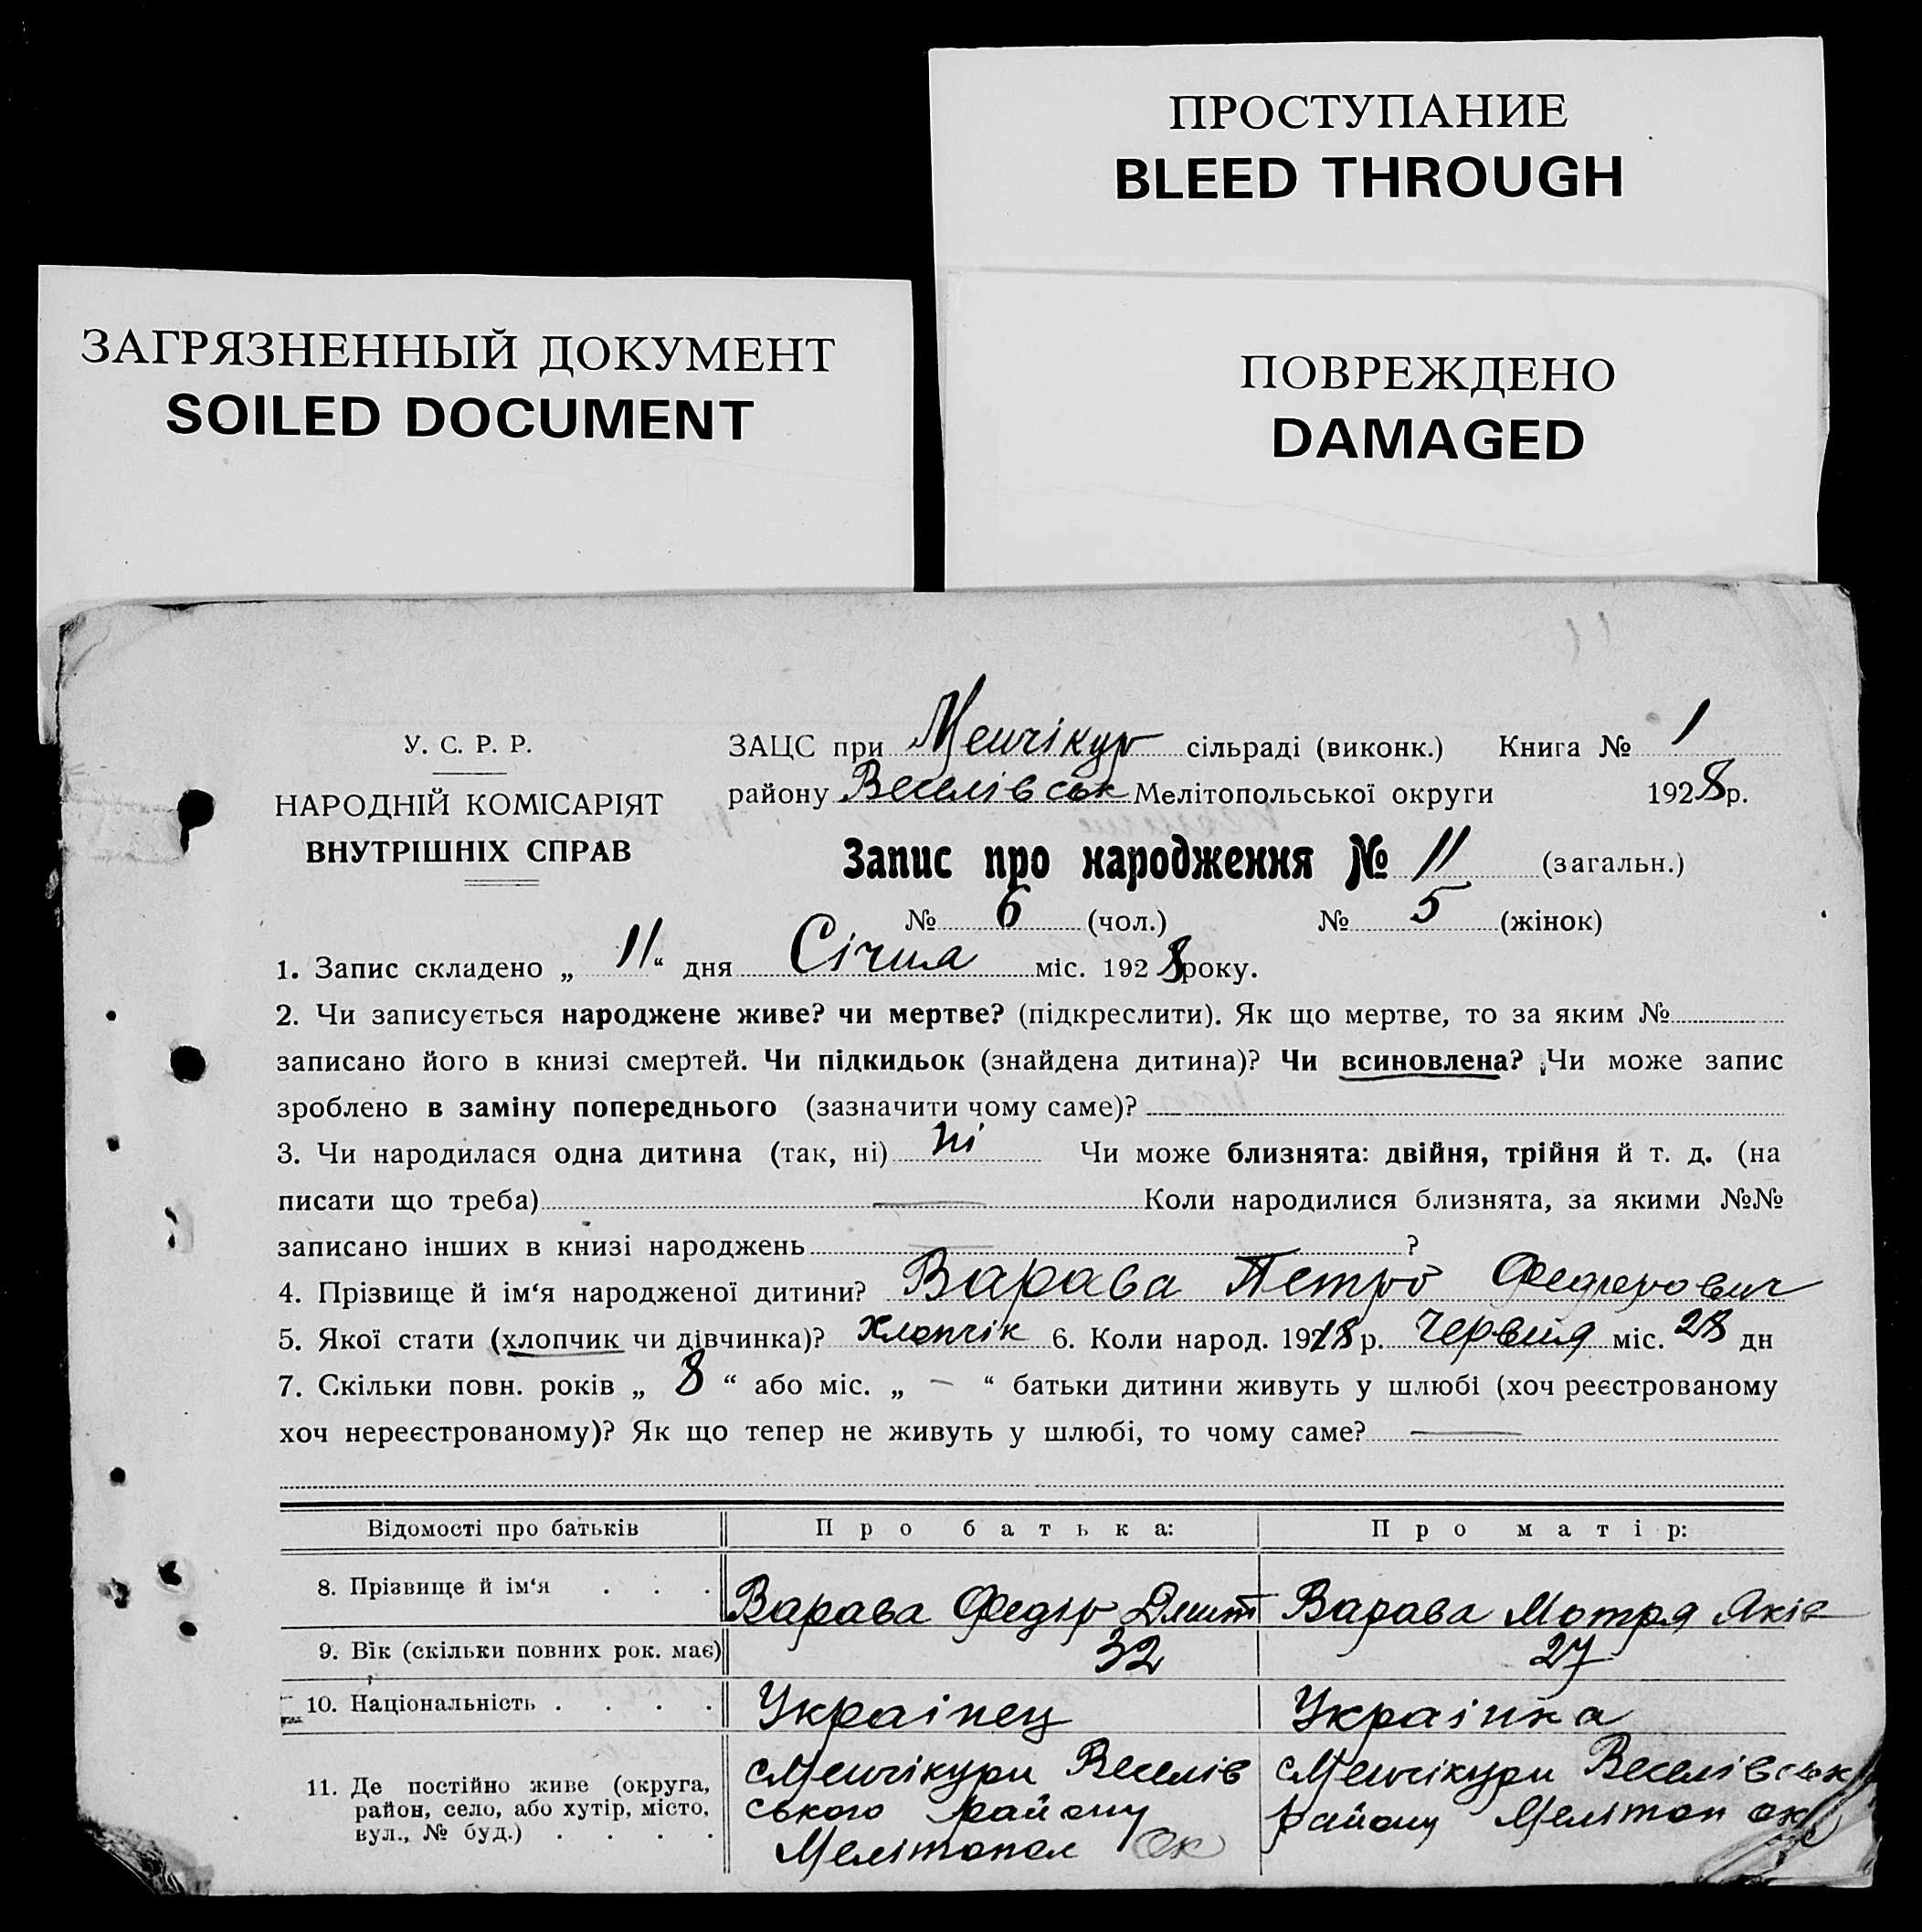 ПРОСТУПАНИЕ
BLEED THROUGH
ЗАГРЯЗНЕННЫЙ ДОКУМЕНТ
SOILED DOCUMENT
ПОВРЕЖДЕНО
DAMAGED
У. С. Р. Р.
НАРОДНІЙ КОМІСАРІЯТ
ВНУТРІШНІХ СПРАВ
ЗАЦС при Менчікур сільраді (виконк.) Книга № 1
району Веселівськ Мелітопольської округи 1928 р.
Запис про народження № 11 (загальн.)
№ 6 (чол.) № 5 (жінок)
1. Запис складено „ 11 “ дня Січня міс. 1928 року.
2. Чи записується народжене живе? чи мертве? (підкреслити). Як що мертве, то за яким №
записано його в книзі смертей. Чи підкидьок (знайдена дитина)? Чи всиновлена? Чи може запис
зроблено в заміну попереднього (зазначити чому саме)?
3. Чи народилася одна дитина (так, ні) ні Чи може близнята: двійня, трійня й т. д. (на
писати що треба) — Коли народилися близнята, за якими №№
записано інших в книзі народжень — ?
4. Прізвище й ім‘я народженої дитини? Варава Петро Федорович
5. Якої стати (хлопчик чи дівчинка)? Хлопчік 6. Коли народ. 19 р. Червня міс. 28 дн
7. Скільки повн. років „ 8 “ або міс. „ — “ батьки дитини живуть у шлюбі (хоч реєстрованому
хоч нереєстрованому)? Як що тепер не живуть у шлюбі, то чому саме? —
Відомості про батьків Про батька: Про матір:
8. Прізвище й ім‘я . . . Варава Федір Дмит Варава Мотря Яків
9. Вік (скільки повних рок. має) 32 27
10. Національність . . . . Украінец Украінка
11. Де постійно живе (округа,
район, село, або хутір, місто,
вул., № буд.) . . . .
с Менчікури Веселів
ського району
Мелітопол Ок
с Менчікури Веселівськ
району Мелітоп ок